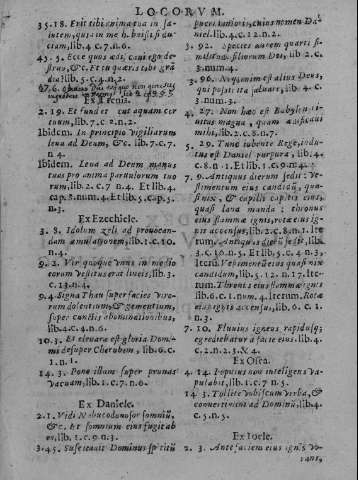 LOCORVM.
35.18. Erit tibi anima tua in salutem, quia in me habuisti fi-
duciam, lib.4.c.7.n.6.
43.5. Ecce quos
lib.5.c.4.n.2.
Ex Trenis.
2.19. Effunde sicut aquam cor
tuum, lib.7.c.2.n.2.
Ibidem. In principio vigiliarum
leua ad Deum, &c. lib.7.c.7.
n.4.
Ibidem. Leua ad Deum manus
tuas pro anima paruulorum tuo
rum, lib.2.c.7. n.4. Et lib.4.
cap.8.num.4. Et lib.5. cap.5.
n.3.
Ex Ezechiele.
3.8. Idolum zeli ad prouocan-
dam æmulationem, lib.1.c.10.
n.4.
9.2. Vir quoque vnus in medio
eorum vestitus erat lineis, lib.3.
c.13.n.4.
9.4 Signa Thau super facies viro-
rum dolentium, & gementium,
super cunctis abominationibus,
lib.4.c.4.n.6.
10.3. Et eleuata est gloria Domi-
ni desuper Cherubem, lib.6.c.
1.n.
14.3. Pone illam super prunas
vacuam, lib.1.c.7.n.6.
Ex Daniele.
2.1. Vidi Nabucodonosor somniū,
&c. Et somnium eius fugit ab
eo, lib.1.c.9.n.3.
3.45. Suscitauit Dominus spiritū
pueri iunioris, cuius nomen Da-
niel. lib.4.c.12.n.2.
3.92. Species autem quarti si-
milis filiorum Dei, lib 2.c.
3.num.4.
3.96. Neque enim est alius Deus,
qui possit ita saluare, lib.4.c.
3.num.3.
4.27. Non hæc est Babylon ci-
uitas magna, quam ædificaui
mihi, lib.2.c.8.n.7.
5.29. Tunc iubente Rege, indu-
tus est Daniel purpura, lib.4.
c.8.n.1. Et lib.1.c.9.n.4.
7.9. Antiquus dierum sedit: ve-
stimentum eius candidū, qua-
si nix, & capilli capitis eius,
quasi lana munda: thronus
eius flammæ ignis, rotæ eius ig-
nis accensus, lib.2.c.8.n.1. Ite
rum. Antiquus dierū sedit, lib.
3.c.10.n.5. Et lib.5.c.4.n.3.
Iterū. Vestimentū eius quasi nix
candidum, lib.5.12.n.17. Ite-
rum. Thronus eius flammæ ignis
lib.6.c.1.num.4. Iterum. Rotæ
eius ignis accensus, lib.6.c.1.
n.3.
7.10. Fluuius igneus rapidusq;
egrediebatur à facie eius. lib.4.
c.2.n.2.3.& 4.
Ex Osea.
4.14. Populus non intelligens va-
pulabit, lib.1.c.7 n.5.
14 3. Tollite vobiscum verba, &
conuertimini ad Dominū, lib.4.
c.5.n.5.
Ex Ioele.
2.3. Ante faciem eius ignis vo-
rans,